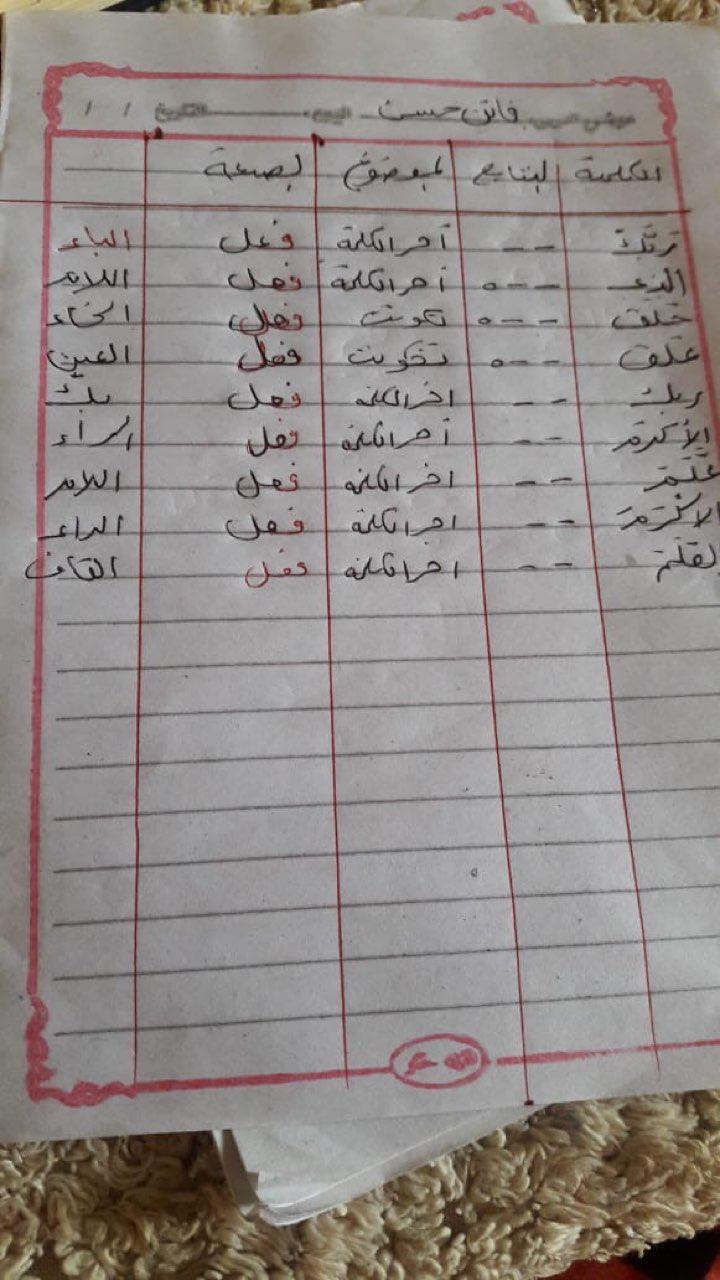 فاتن حسن اليوم التاريخ / /
الكلمة التتابع الموضوع الصفة
ربك -- أخر الكلمة فعل الباء
الذي --ه أخر الكلمة فعل اللام
خلق --ه تكوين فعل الخاء
علق --ه تكوين فعل العين
ربك -- اخر الكلمة فعل بك
الأكرم -- أخر الكلمة فعل الراء
علم -- اخر الكلمة فعل اللام
الاكرم -- اخر الكلمة فعل الراء
لقلم -- اخر الكلمة فعل القاف